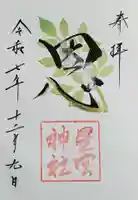 奉拝
恩心
星宮
神社
令和七年十二月九日